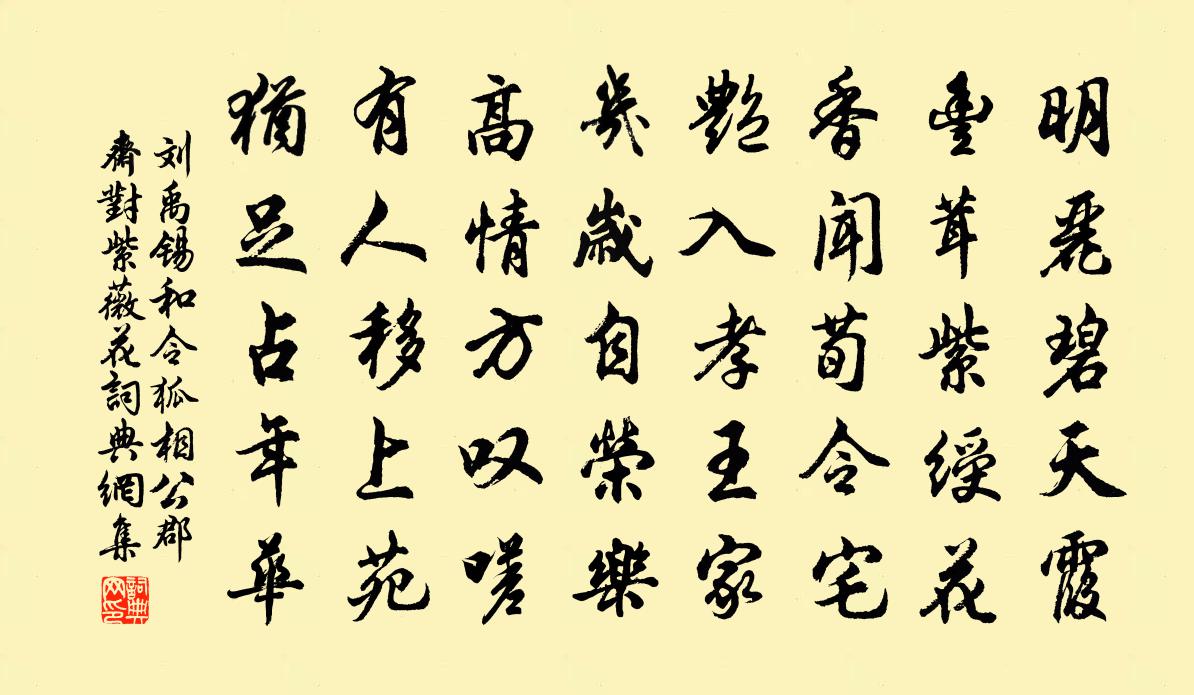 明麗碧天霞
豐茸紫綬花
香聞荀令宅
艷入孝王家
幾歲自榮樂
高情方叹嗟
有人移上苑
猶足占年華
刘禹锡和令狐相公郡
齋對紫薇花詞典網集
詞典网印